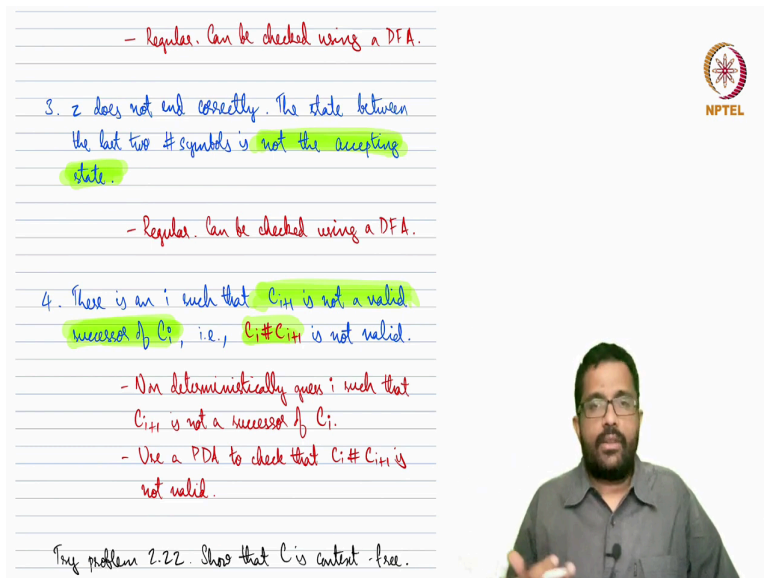 - Regular. Can be checked using a DFA.
NPTEL
3. z does not end correctly. The state between
the last two # symbols is not the accepting
state.
- Regular. Can be checked using a DFA.
4. There is an i such that Ci+1 is not a valid
successor of Ci, i.e., Ci#Ci+1 is not valid.
- Non deterministically guess i such that
Ci+1 is not a successor of Ci.
- Use a PDA to check that Ci#Ci+1 is
not valid.
Try problem 2.22. Show that C is context-free.